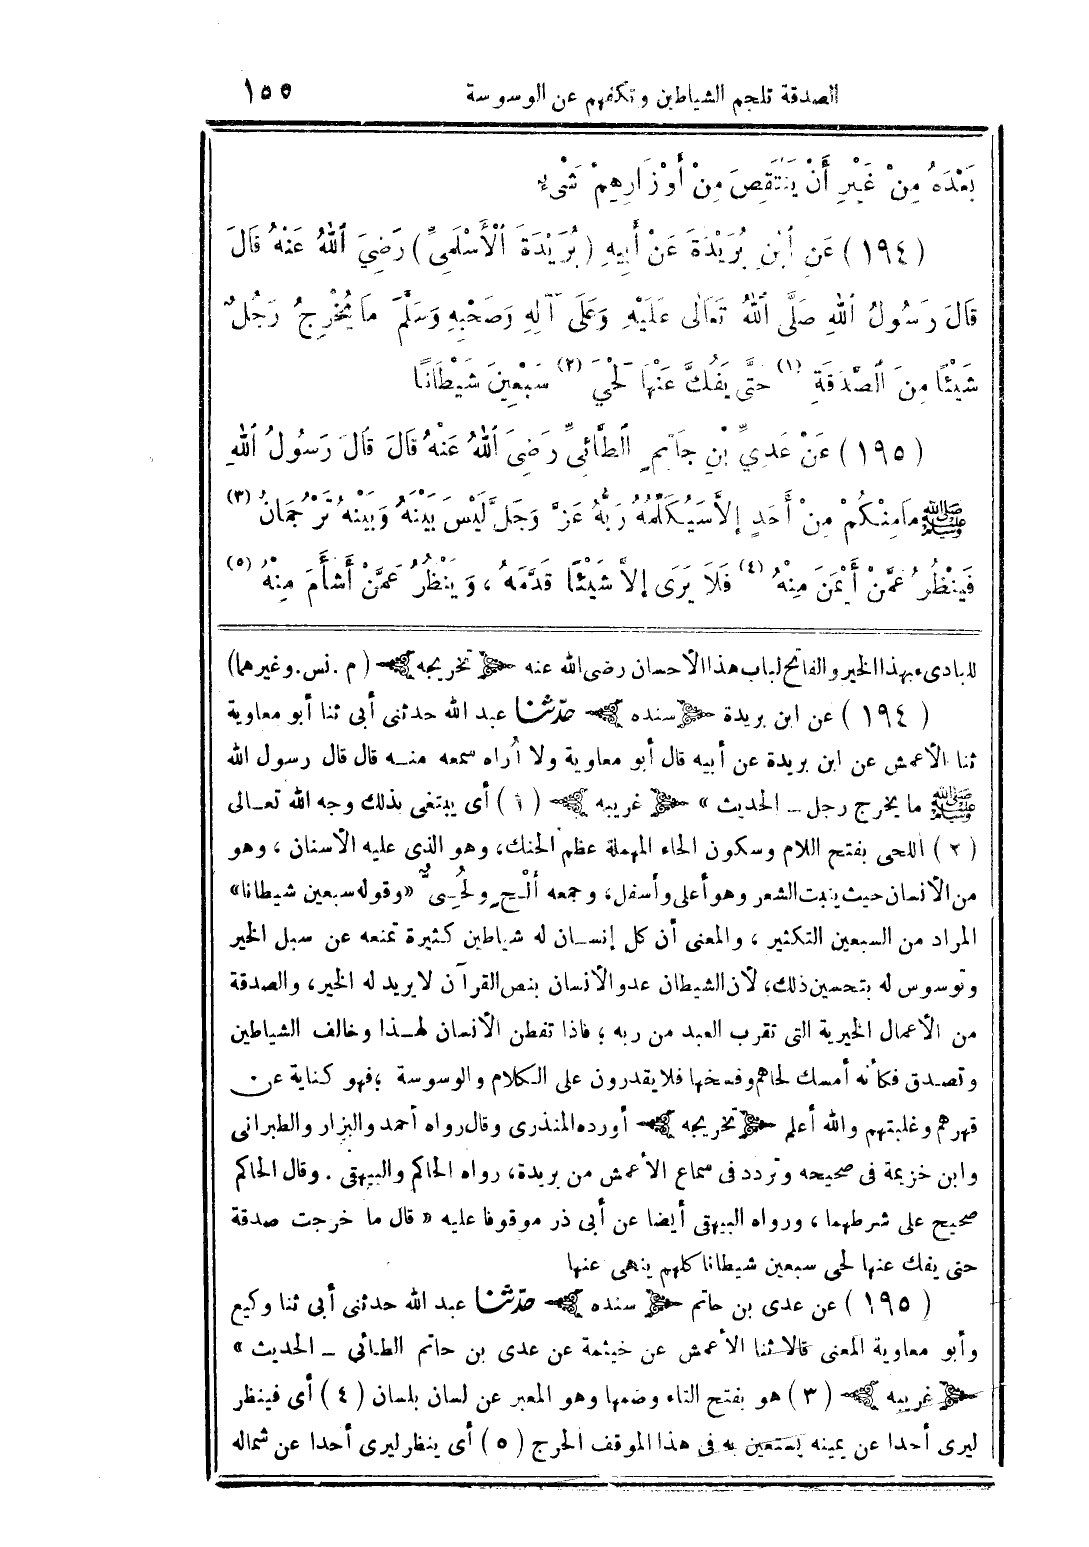 الصدقة تلجم الشياطين وتكفهم عن الوسوسة ١٥٥
بَعْدَهُ مِنْ غَيْرِ أَنْ يَنْتَقِصَ مِنْ أَوْزَارِهِمْ شَىْءٍ
( ١٩٤ ) عَنِ ٱبْنِ بُرَيْدَةَ عَنْ أَبِيهِ ( بُرَيْدَةَ ٱلْأَسْلَمِىِّ ) رَضِيَ ٱللهُ عَنْهُ قَالَ
قَالَ رَسُولُ ٱللهِ صَلَّى ٱللهُ تَعَالَى عَلَيْهِ وَعَلَى آلِهِ وَصَحْبِهِ وَسَلَّمَ مَا يُخْرِجُ رَجُلٌ
شَيْئًا مِنَ ٱلصَّدَقَةِ (١) حَتَّى يَفُكَّ عَنْهَا لَحْيَ (٢) سَبْعِينَ شَيْطَانًا
( ١٩٥ ) عَنْ عَدِيِّ بْنِ حَاتِمٍ ٱلطَّائِىِّ رَضِىَ ٱللهُ عَنْهُ قَالَ قَالَ رَسُولُ ٱللهِ
ﷺ مَا مِنْكُمْ مِنْ أَحَدٍ إِلاَّ سَيُكَلِّمُهُ رَبُّهُ عَزَّ وَجَلَّ لَيْسَ بَيْنَهُ وَبَيْنَهُ تَرْجُمَانٌ (٣)
فَيَنْظُرُ عَمَّنْ أَيْمَنَ مِنْهُ (٤) فَلَا يَرَى إِلاَّ شَيْئًا قَدَّمَهُ ، وَيَنْظُرُ عَمَّنْ أَشْأَمَ مِنْهُ (٥)
للبادىء بهذا الخير والفاتح لباب هذا الأحسان رضى الله عنه ﴿ تخريجه ﴾ ( م . نس . وغيرهما )
( ١٩٤ ) عن ابن بريدة ﴿ سنده ﴾ حدّثنا عبد الله حدثنى أبى ثنا أبو معاوية
ثنا الأعمش عن ابن بريدة عن أبيه قال أبو معاوية ولا أُراه سمعه منـه قال قال رسول الله
ﷺ ما يخرج رجل ــ الحديث » ﴿ غريبه ﴾ ( ١ ) أى يبتغى بذلك وجه الله تعـالى
( ٢ ) اللحى بفتح اللام وسكون الحاء المهملة عظم الحنك ، وهو الذى عليه الأسنان ، وهو
من الأنسان حيث ينبت الشعر وهو أعلى وأسفل ، وجمعه أَلْحٍ ولُحِىّ «وقوله سبعين شيطانا»
المراد من السبعين التكثير ، والمعنى أن كل إنسـان له شياطين كثيرة تمنعه عن سبل الخير
وتوسوس له بتحسين ذلك، لأن الشيطان عدو الأنسان بنص القرآن لا يريد له الخير، والصدقة
من الأعمال الخيرية التى تقرب العبد من ربه ؛ فاذا تفطن الأنسان لهـذا وخالف الشياطين
وتصدق فكأنه أمسك لحاهم وفسخها فلا يقدرون على الكلام والوسوسة ؛ فهو كناية عن
قهرهم وغلبتهم والله أعلم ﴿ تخريجه ﴾ أورده المنذرى وقال رواه أحمد والبزار والطبرانى
وابن خزيمة فى صحيحه وتردد فى سماع الأعمش من بريدة، رواه الحاكم والبيهقى . وقال الحاكم
صحيح على شرطهما ، ورواه البيهقى أيضا عن أبى ذر موقوفا عليه « قال ما خرجت صدقة
حتى يفك عنها لحى سبعين شيطانا كلهم ينهى عنها
( ١٩٥ ) عن عدى بن حاتم ﴿ سنده ﴾ حدّثنا عبد الله حدثنى أبى ثنا وكيع
وأبو معاوية المعنى قالا ثنا الأعمش عن خيثمة عن عدى بن حاتم الطـائى ــ الحديث »
﴿ غريبه ﴾ ( ٣ ) هو بفتح التاء وضمها وهو المعبر عن لسان بلسان ( ٤ ) أى فينظر
ليرى أحدا عن يمينه يستعين به فى هذا الموقف الحرج ( ٥ ) أى ينظر ليرى أحدا عن شماله